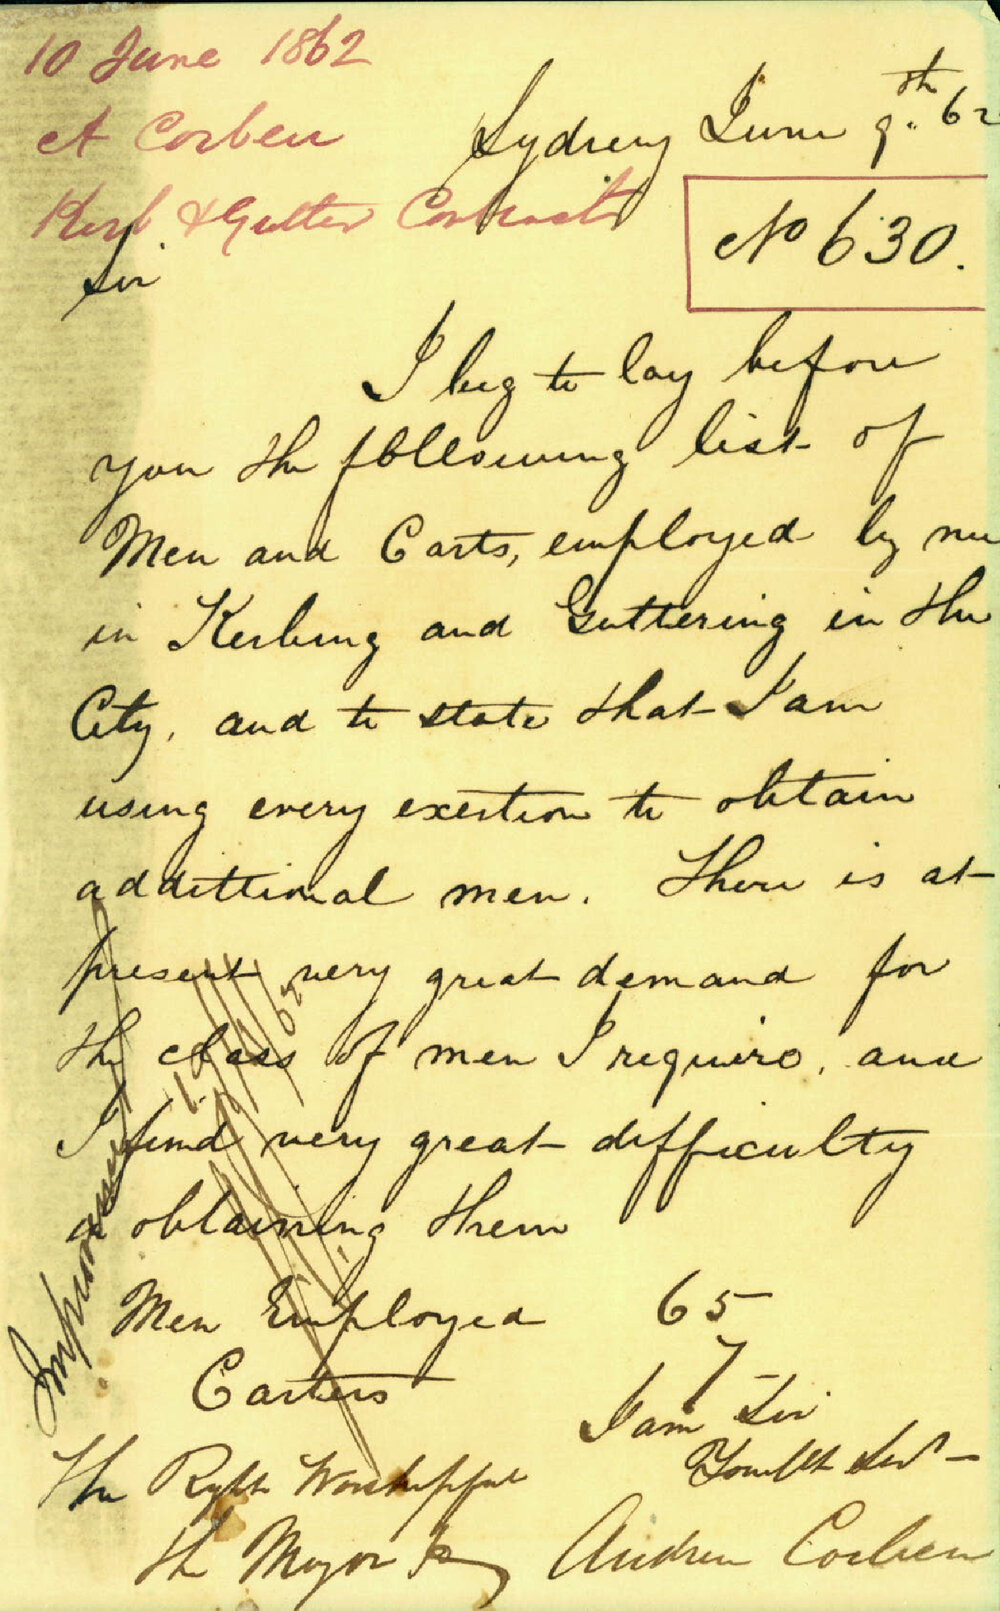 10 June 1862
A Corben
Kerb & Gutter Contracts
Sydney June 9th 62
No 630.
Sir
I beg to lay before
you the following list of
Men and Carts, employed by me
in Kerbing and Guttering in the
City, and to state that I am
using every exertion to obtain
addittional men. There is at
present very great demand for
the class of men I require, and
I find very great difficulty
in obtaining them
Men Employed 65
Carters 7
I am Sir
Your Obt Servt
The Right Worshipful
The Mayor
Andrew Corben